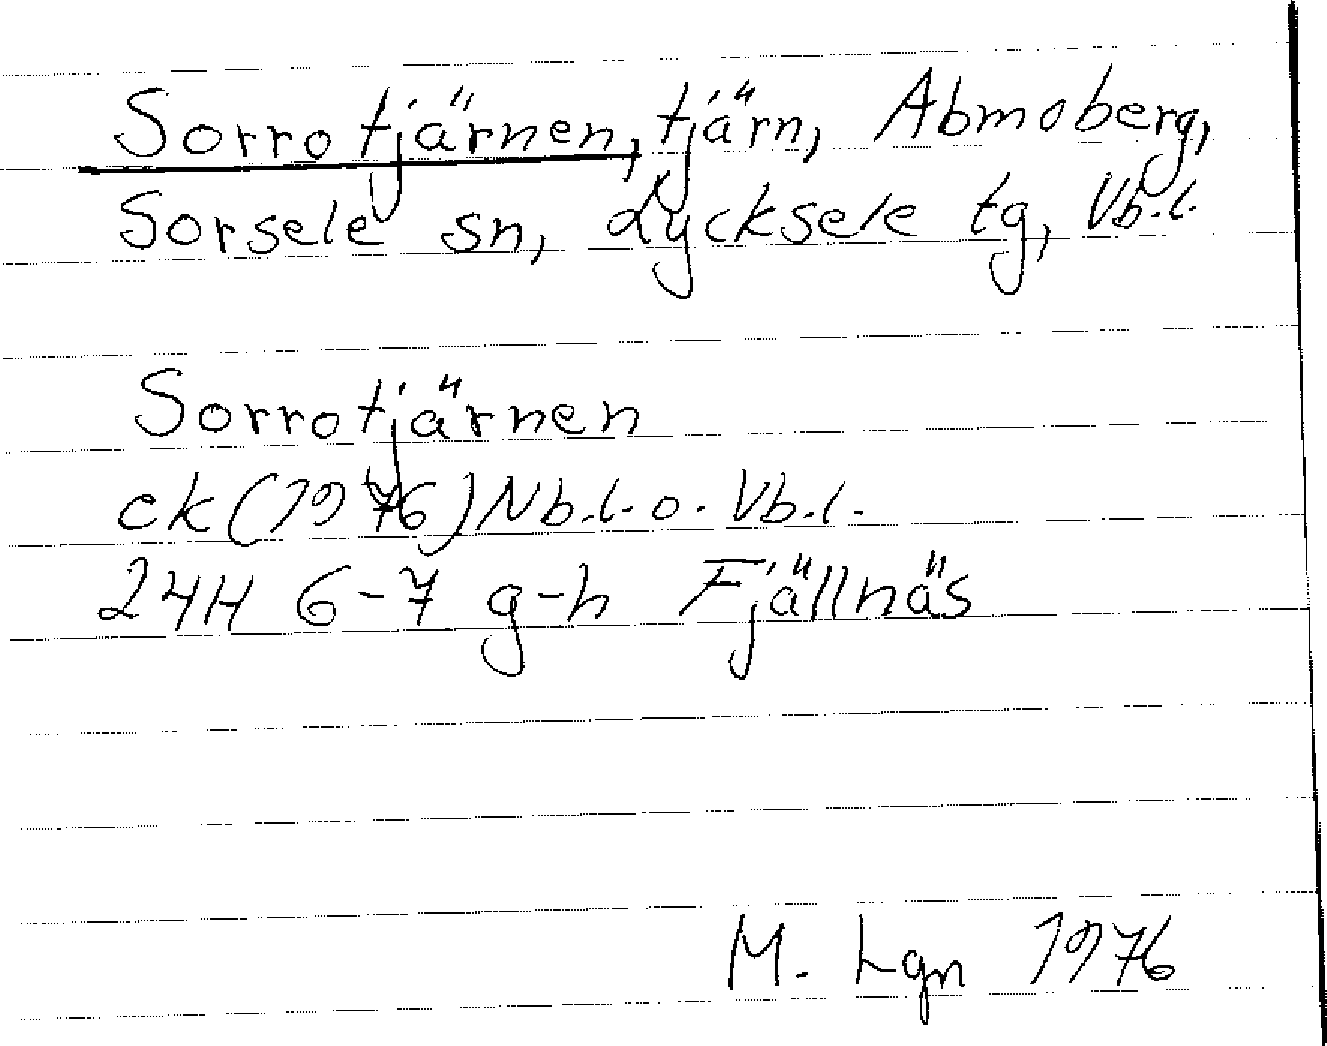 Sorrotjärnen, tjärn, Abmoberg,
Sorsele sn, Lycksele tg, Vb.l.
Sorrotjärnen
ek (1976) Nb.l. o. Vb.l.
24H 6-7 g-h Fjällnäs
M. Lgn 1976